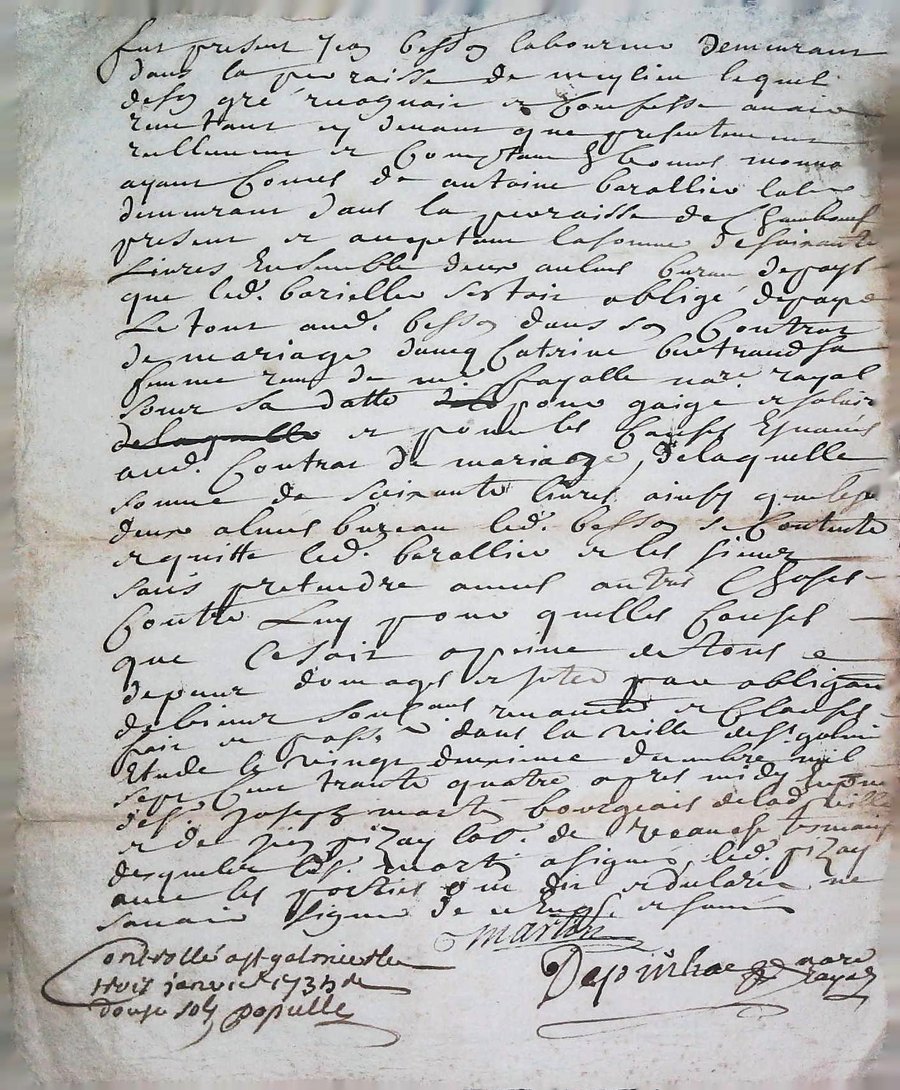 fut present Jean besson laboureur demeurant
dans la parroisse de meylieu lequel
de son gré recognait et Confesse avoir
tout en devant que presentement
reellement et Comptant & bonnes monno
ayant Cours de antoine barallier labr
demeurant dans la parroisse de Chambœuf
present et acceptant la somme de soixante
Livres Ensemble deux aulnes bureau de pays
que led. barallier sestoit obligé de payer
Le tout aud. besson dans son Contrat
de mariage avecq Catrine bertrand sa
femme receu de me. fayolle nore. royal
sous sa datte pour gaige et salair
de laquelle et pour les Causes
aud. Contrat de mariage, de laquelle
somme de soixante livres ainsy que les
deux aulnes bureau led. besson se Contente
et quitte led. barallier et les siens
sans pretendre autres Choses
Contre Luy pour quelles Causes
que Ce soit a peine de tous
depens domages et par obligaon
de biens soubmis renoncé et Clauses
fait et passé dans la ville de st. galmier
Etude le vingt deuxieme decembre mil
sept Cent trante quatre apres midy
de sr. Joseph martin bourgeois de lad ville
et de Jean pizay labr. de temoins
desquels led. martin a signé, led. pizay
avec les parties ont dit et declaré ne
savoir signer de et
martin
Depinhac nore
Royal
Controllé a st galmier le
trois janvier 1735
douze sols papulle